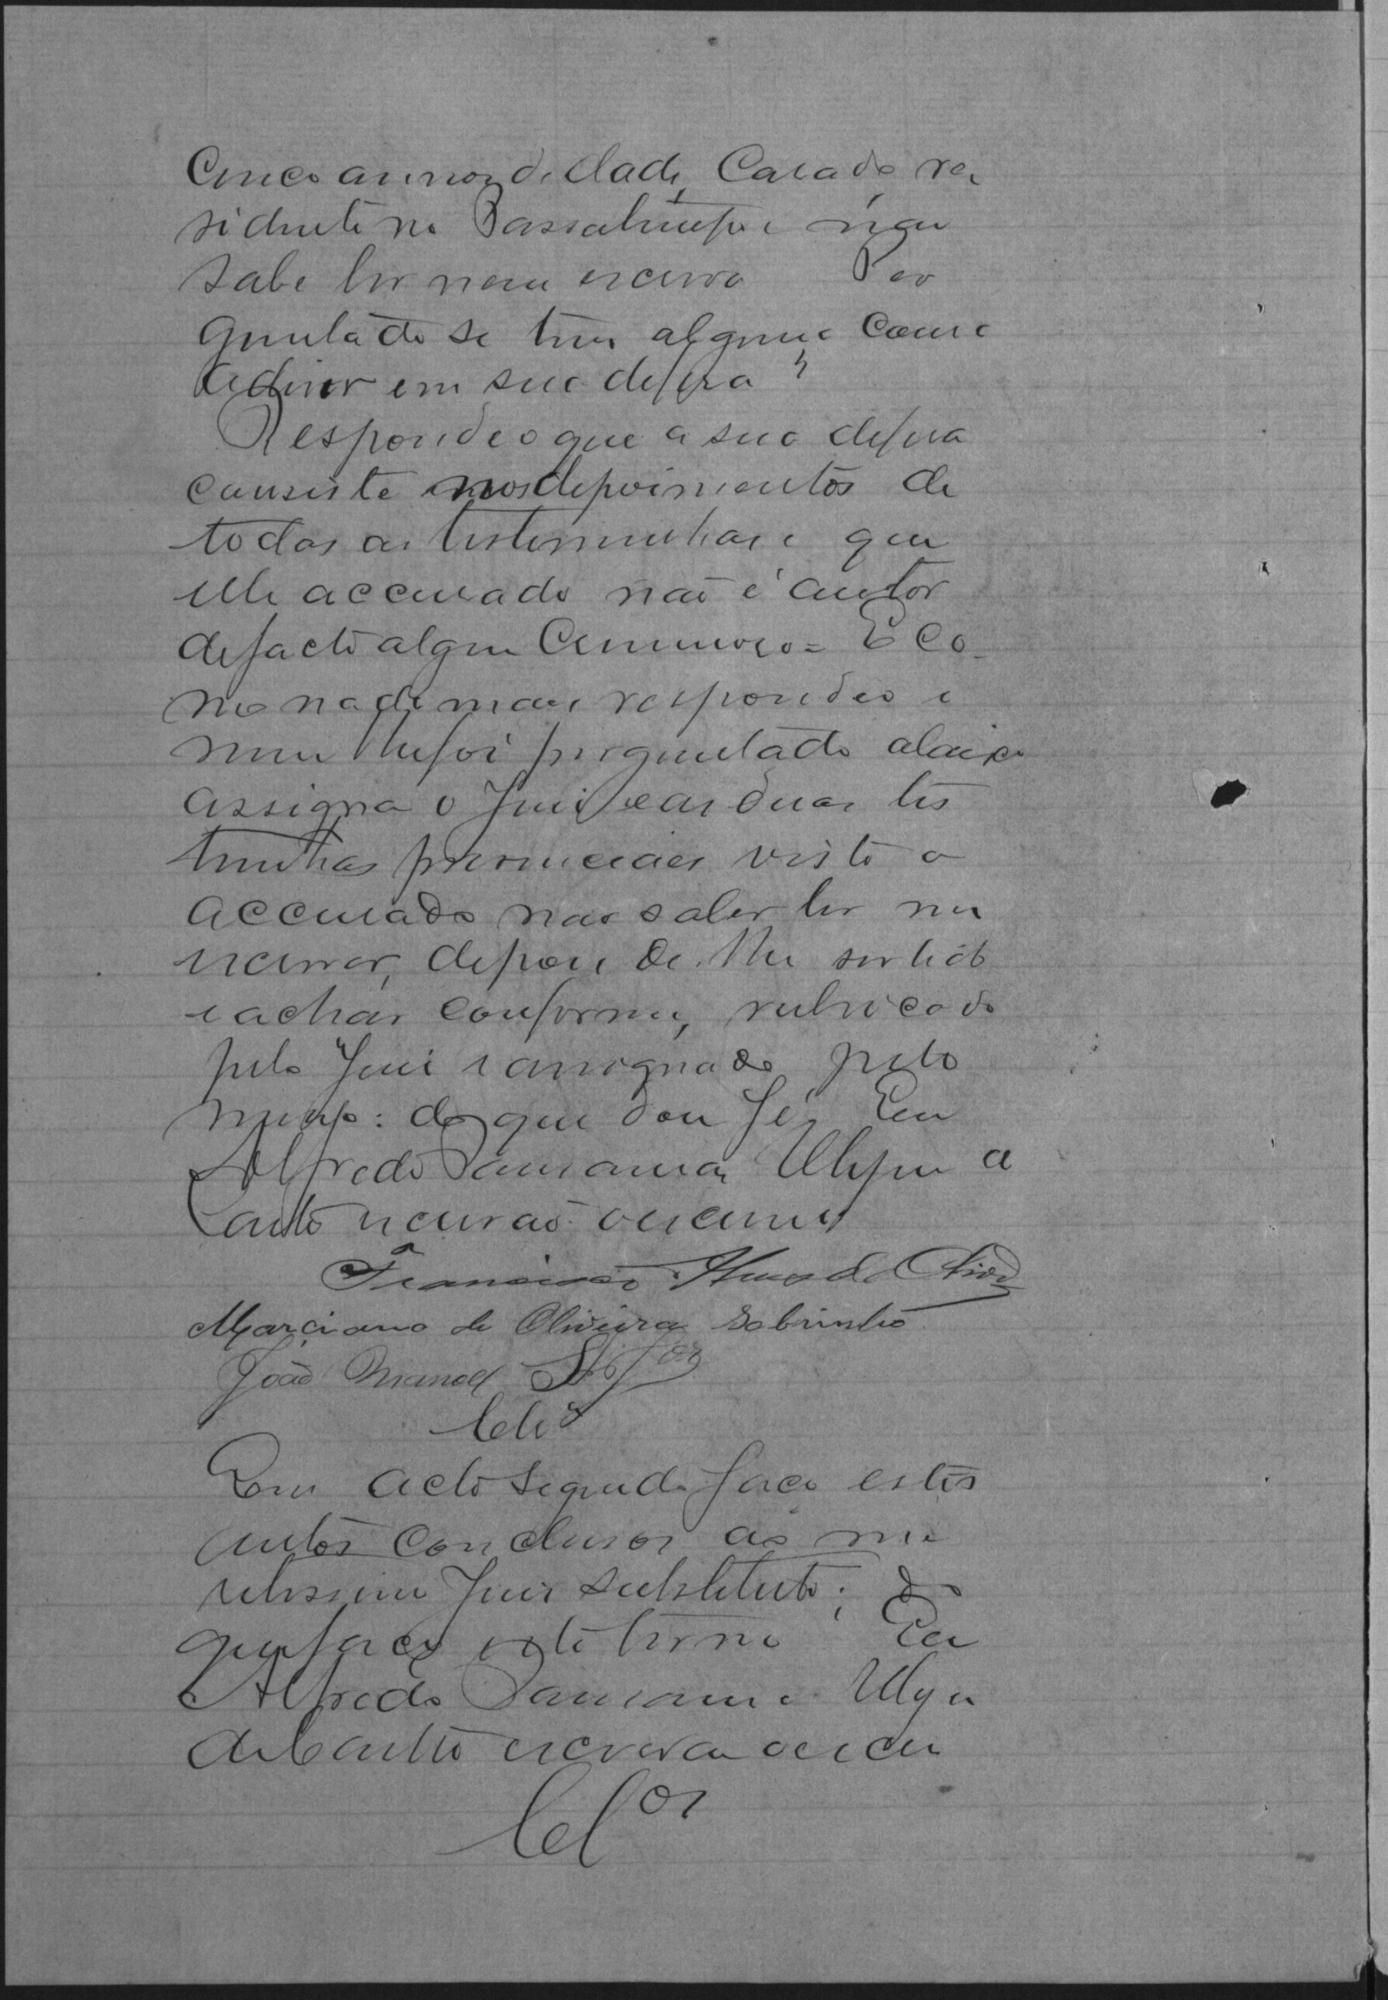 Cinco annos de idade, Casado re,
sidente no Passatempo e não
sabe ler nem escrever Per
guntado se tem alguma cousa
a dizer em sua defesa?
Respondeo que a sua defesa
consiste nos depoimentos de
todas as testemunhas e que
elle accusado não é autor
de facto algum Criminoso = E co
mo nada mais respondeo e
nem lhe foi perguntado abaixo
assigna o Juiz e as duas tes
tmunhas presenciaes visto o
accusado não saber ler nem
escrever, depois de lhe ser lido
e achar conforme, rubricado
pelo Juiz e assignado pelo
mesmo: do que dou fé, Eu
Alfredo
Castro escrivão o escrevi
Francisco Alves de
Marciano de Oliveira Sobrinho
João Manoel
Cls
Em acto seguido faço estes
autos conclusos ao me
ritissimo Juiz Substituto; do
que faço este termo Eu
Alfredo
de Castro escrivão o escrevi
Clos